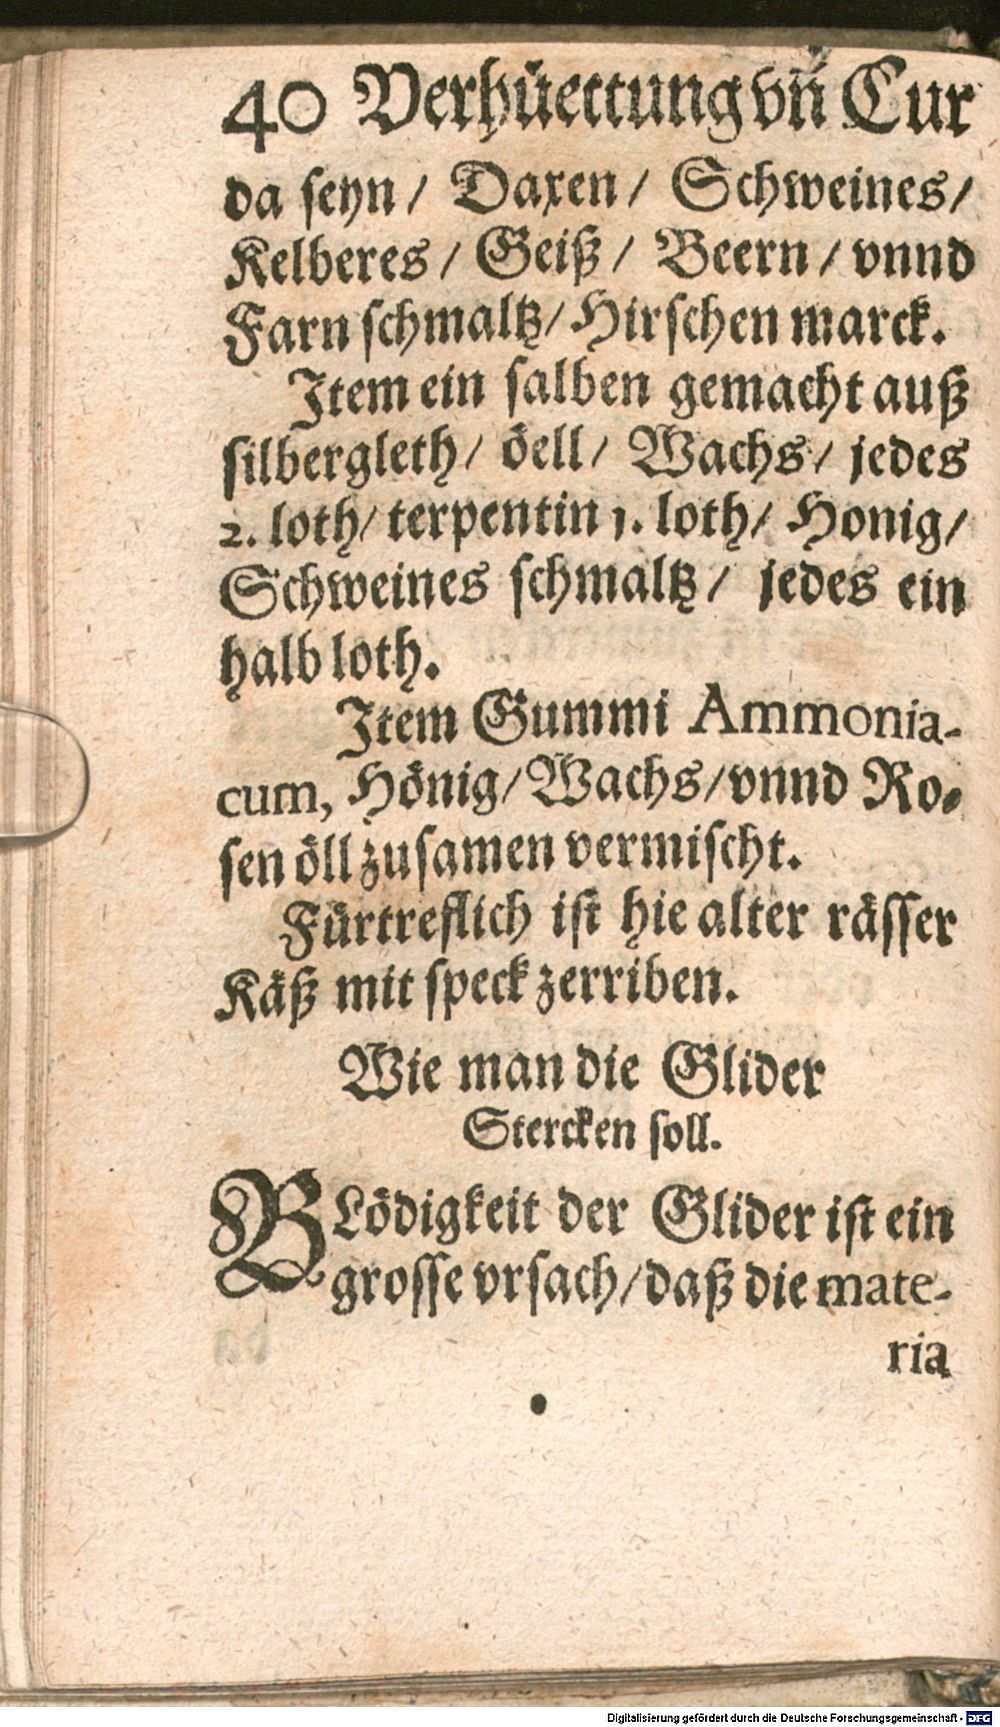 40 Verhüettung vñ Cur
da seyn / Daxen / Schweines /
Kelberes / Geiß / Beern / vnnd
Farn schmaltz / Hirschen marck.
Item ein salben gemacht auß
silbergleth / öell / Wachs / jedes
2. loth / terpentin 1. loth / Honig /
Schweines schmaltz / jedes ein
halb loth.
Item Gummi Ammonia-
cum, Hönig / Wachs / vnnd Ro-
sen öll zusamen vermischt.
Fürtreflich ist hie alter rässer
Käß mit speck zerriben.
Wie man die Glider
Stercken soll.
BLödigkeit der Glider ist ein
grosse vrsach / daß die mate-
ria
Digitalisierung gefördert durch die Deutsche Forschungsgemeinschaft - DFG